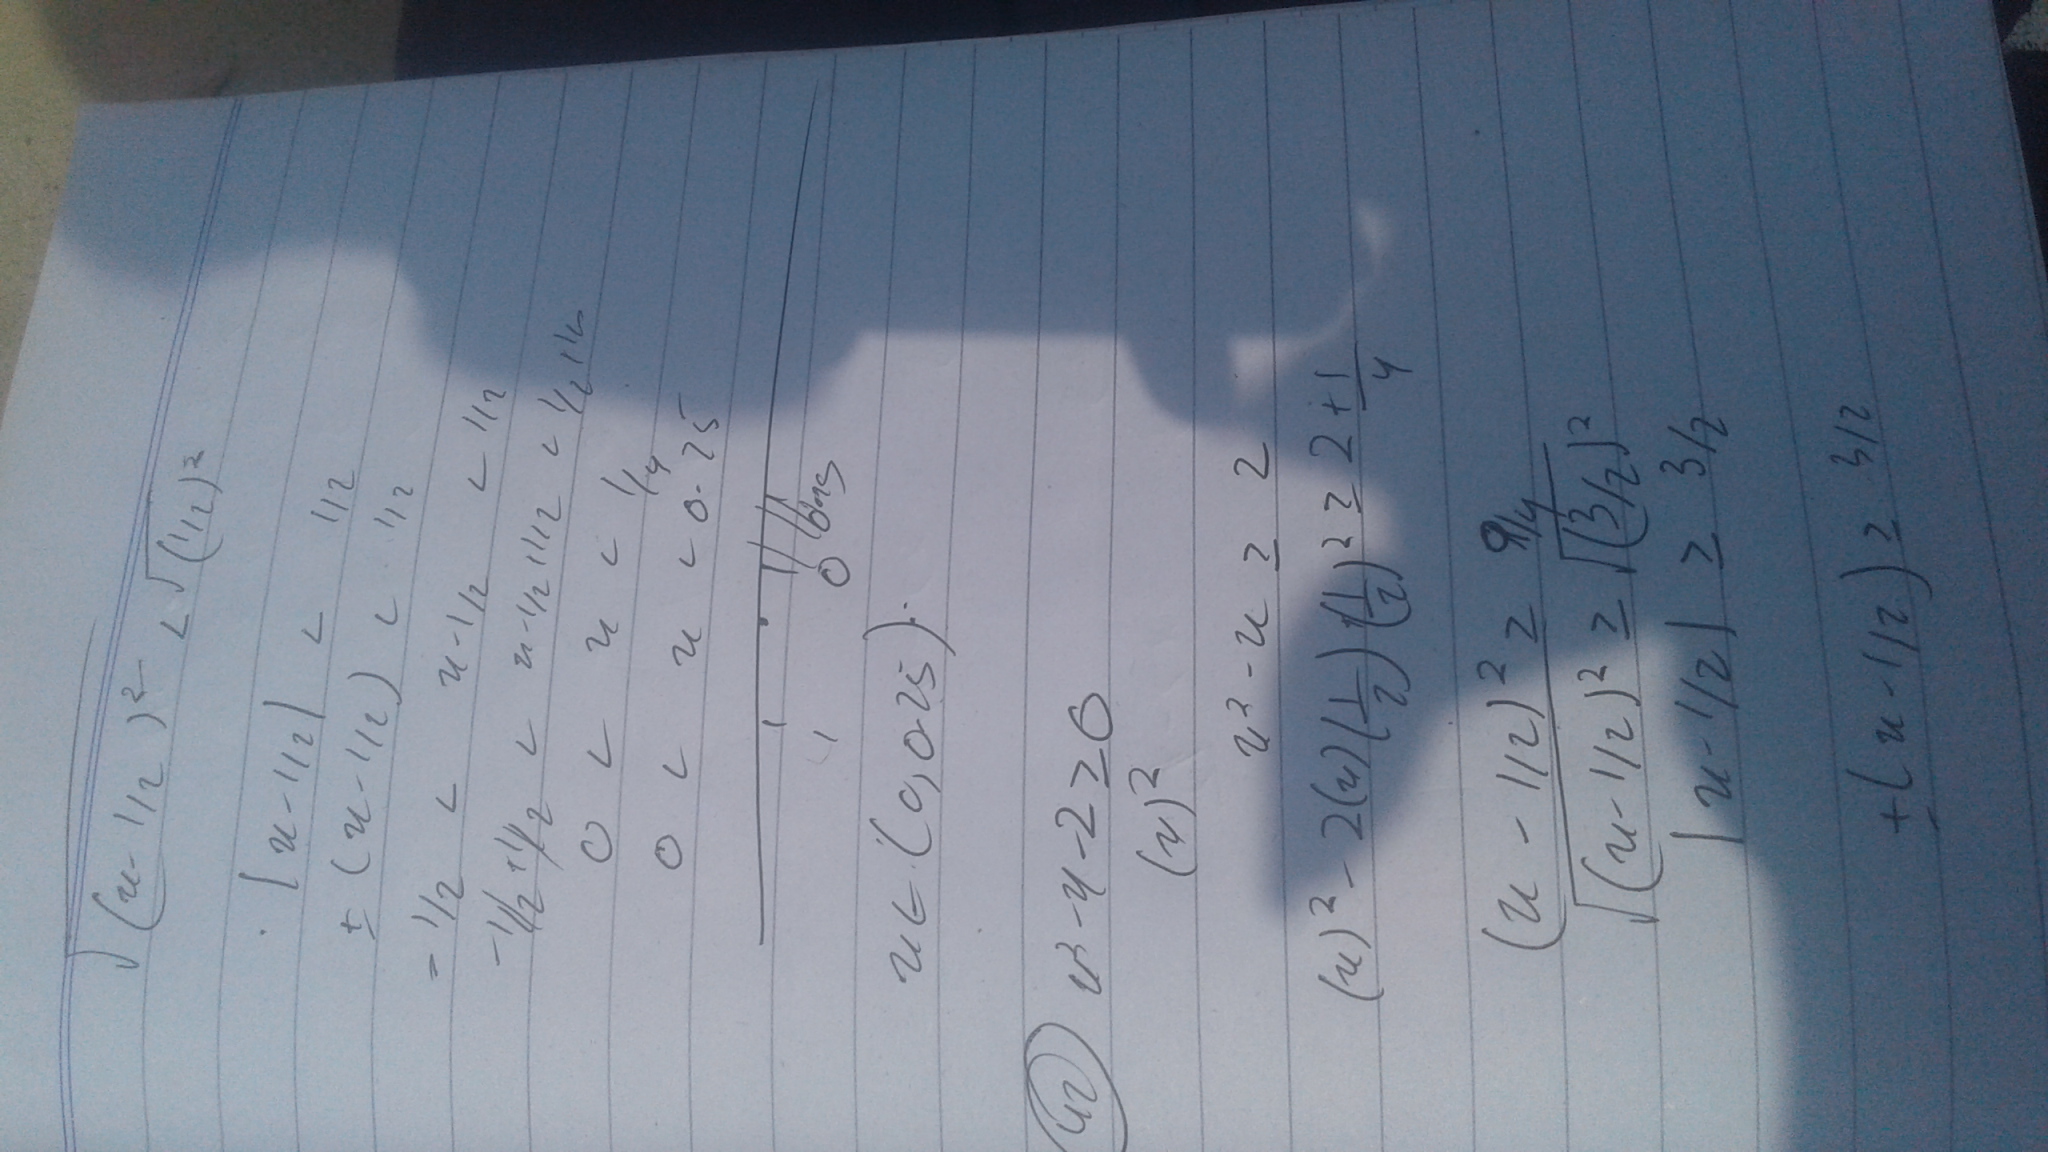 √(x-1/2)² < √(1/2)²
|x-1/2| < 1/2
± (x-1/2) < 1/2
-1/2 < x-1/2 < 1/2
-1/2+1/2 < x-1/2+1/2 < 1/2+1/2
0 < x < 1/4
0 < x < 0.25
1 0 0.25
x ∈ (0, 0.25)
42 x²-x-2≥0
(x)²
x²-x ≥ 2
(x)²-2(x)(1/2)+(1/2)² ≥ 2+1/4
(x-1/2)² ≥ 9/4
√(x-1/2)² ≥ √(3/2)²
|x-1/2| ≥ 3/2
±(x-1/2) ≥ 3/2